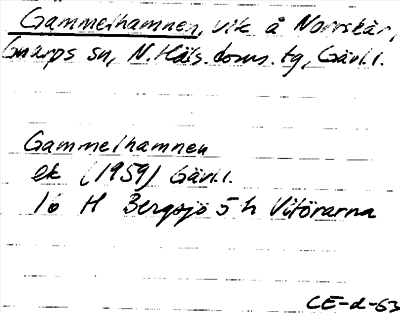 Gammelhamnen, vik å Norrskär,
Gnarps sn, N. Häls. doms. tg, Gävl.l.
Gammelhamnen
ek (1959) Gävl.l.
10 H Bergsjö 5 h Vitörarna
CE-d-63